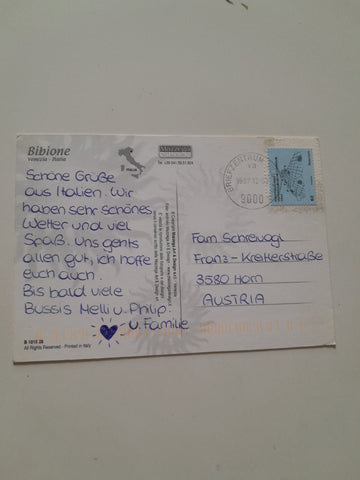 Bibione
Venezia - Italia
ITALIA
BRIEFZENTRUM
9000
Schöne Grüße
aus Italien. Wir
haben sehr schönes
Wetter und viel
Spaß. Uns gents
allen gut, ich hoffe
euch auch.
Bis bald viele
Bussis Melli u. Philip.
u. Familie
Fam Schrewogl
Franz-Kreikerstraße
3580 Horn
AUSTRIA
B 1015 28
All Rights Reserved - Printed in Italy